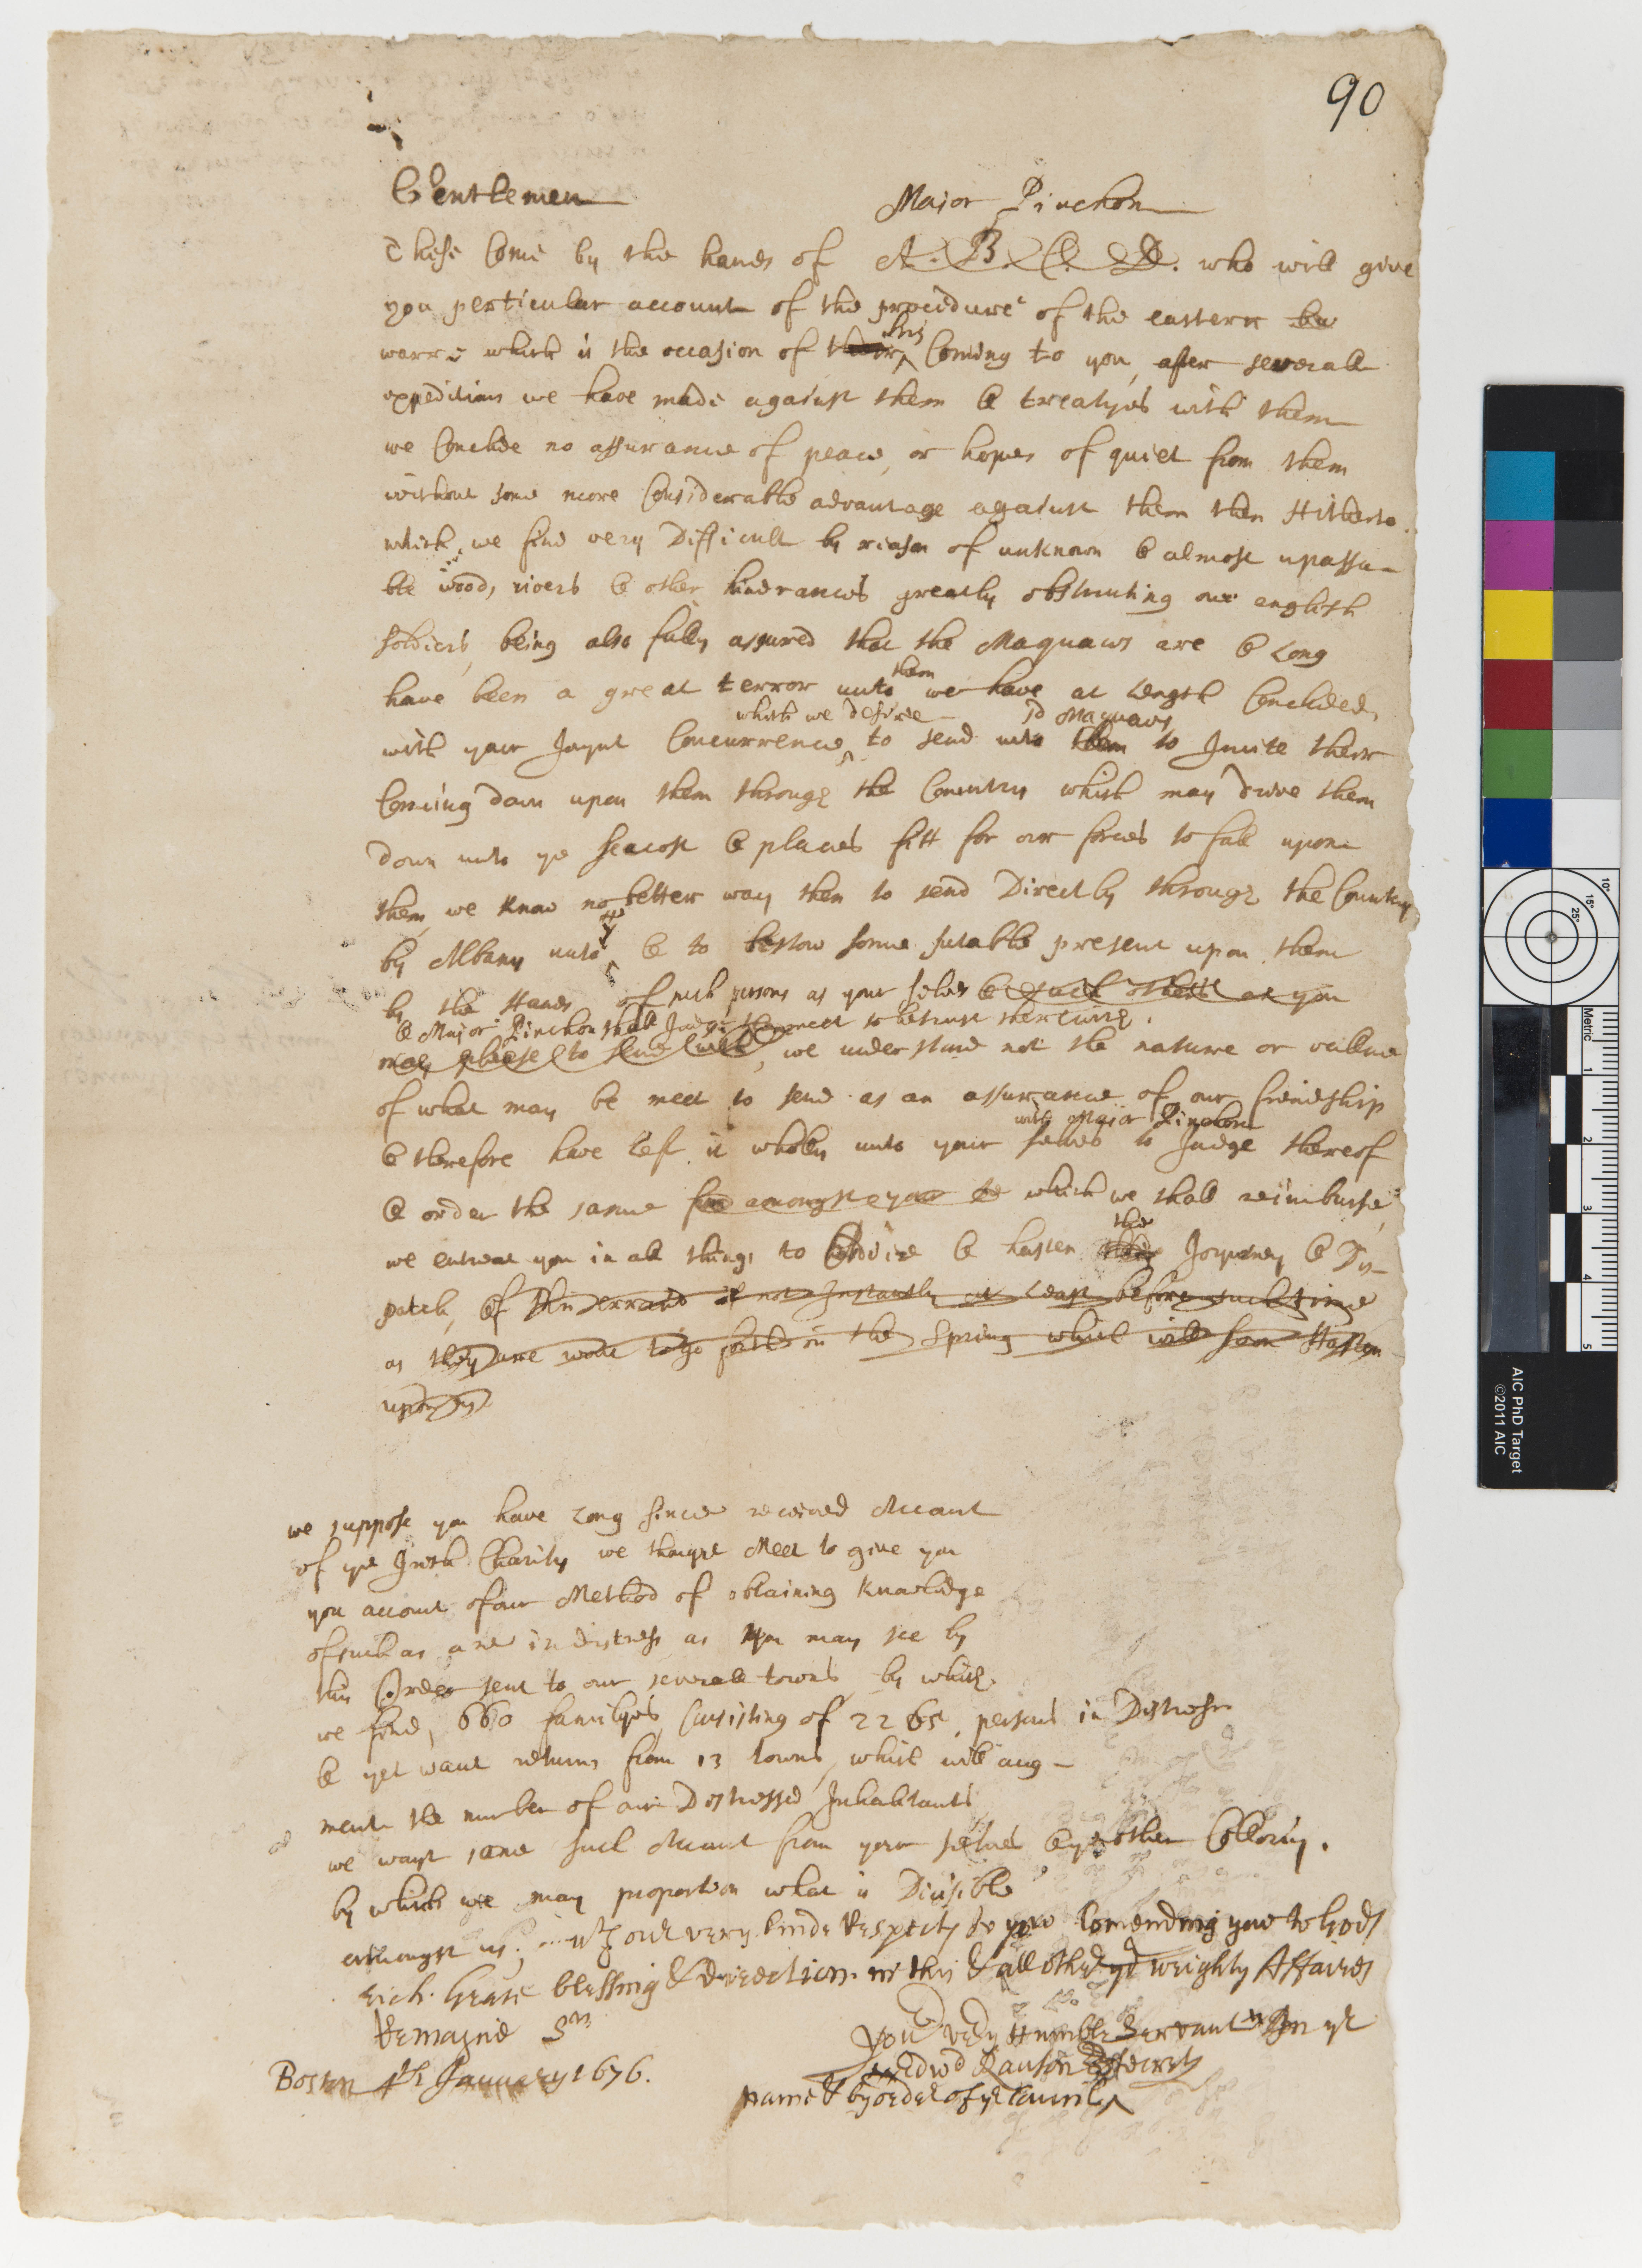 90
Gentlemen
Major Pinchon
These Come by the hands of A. B. C. D. who will give
you perticular account of the procedure of the eastern
warre which is the occasion of their his Coming to you, after severall
expeditions we have made against them & treatyes with them
we Conclude no assurance of peace, or hopes of quiet from them
without some more Considerable advantage against them then Hitherto.
which we find very Difficult by reason of unknown & almost upassa-
ble wood, rivers & other hindrances greatly obstructing our english
soldiers, being also fully assured that the Maquaws are & Long
them
have been a great terror unto we have at Length Concluded,
which we desire sd Maquaws
with your Joynt Concurrence to send unto them to Invite their
Coming down upon them through the Country which may drive them
down unto ye seacost & places fitt for our forces to fall upon
them, we know no better way then to send Directly through the Country
by Albany unto & to bestow some sutable present upon them
by the Hands of such persons as your selves & such others as you
& Major Pinchon shall Judge meet to betrust therewith.
may please to send with, we understand not the nature or vallue
of what may be meet to send as an assurance of our friendship
with Major Pinchon
& therefore have left it wholly unto your selves to Judge thereof
& order the same amongst you which we shall reimburse,
the
we entreat you in all things to Advise & hasten their Journey & Dis-
patch, of this errand if not Instantly at Least before such time
as they are wont to go forth in the Spring which will soon Hasten
upon us
we suppose you have Long since received Account
of ye Irish Charity we thought Meet to give you
you account of our Method of obtaining Knowledge
of such as are in distress as you may see by
this Order sent to our severall towns, by which
we find, 660 familyes, Consisting of 2265 persons in Distress
& yet want returns from 13 towns, which will aug-
ment the number of our Distressed Inhabitants
we want some such Account from your selves & ye other Collony.
by which we may proportion what is Divisible
amongst us; with our very kinde Respects to you Comending you to Gods
rich Grace blessing & direction in this & all other yr weighty Affaires
Remayne Srs
Your very Humble Servant In ye
Edwd Rawson Secrety
Boston 4th January 1676.
name & by order of ye Councill